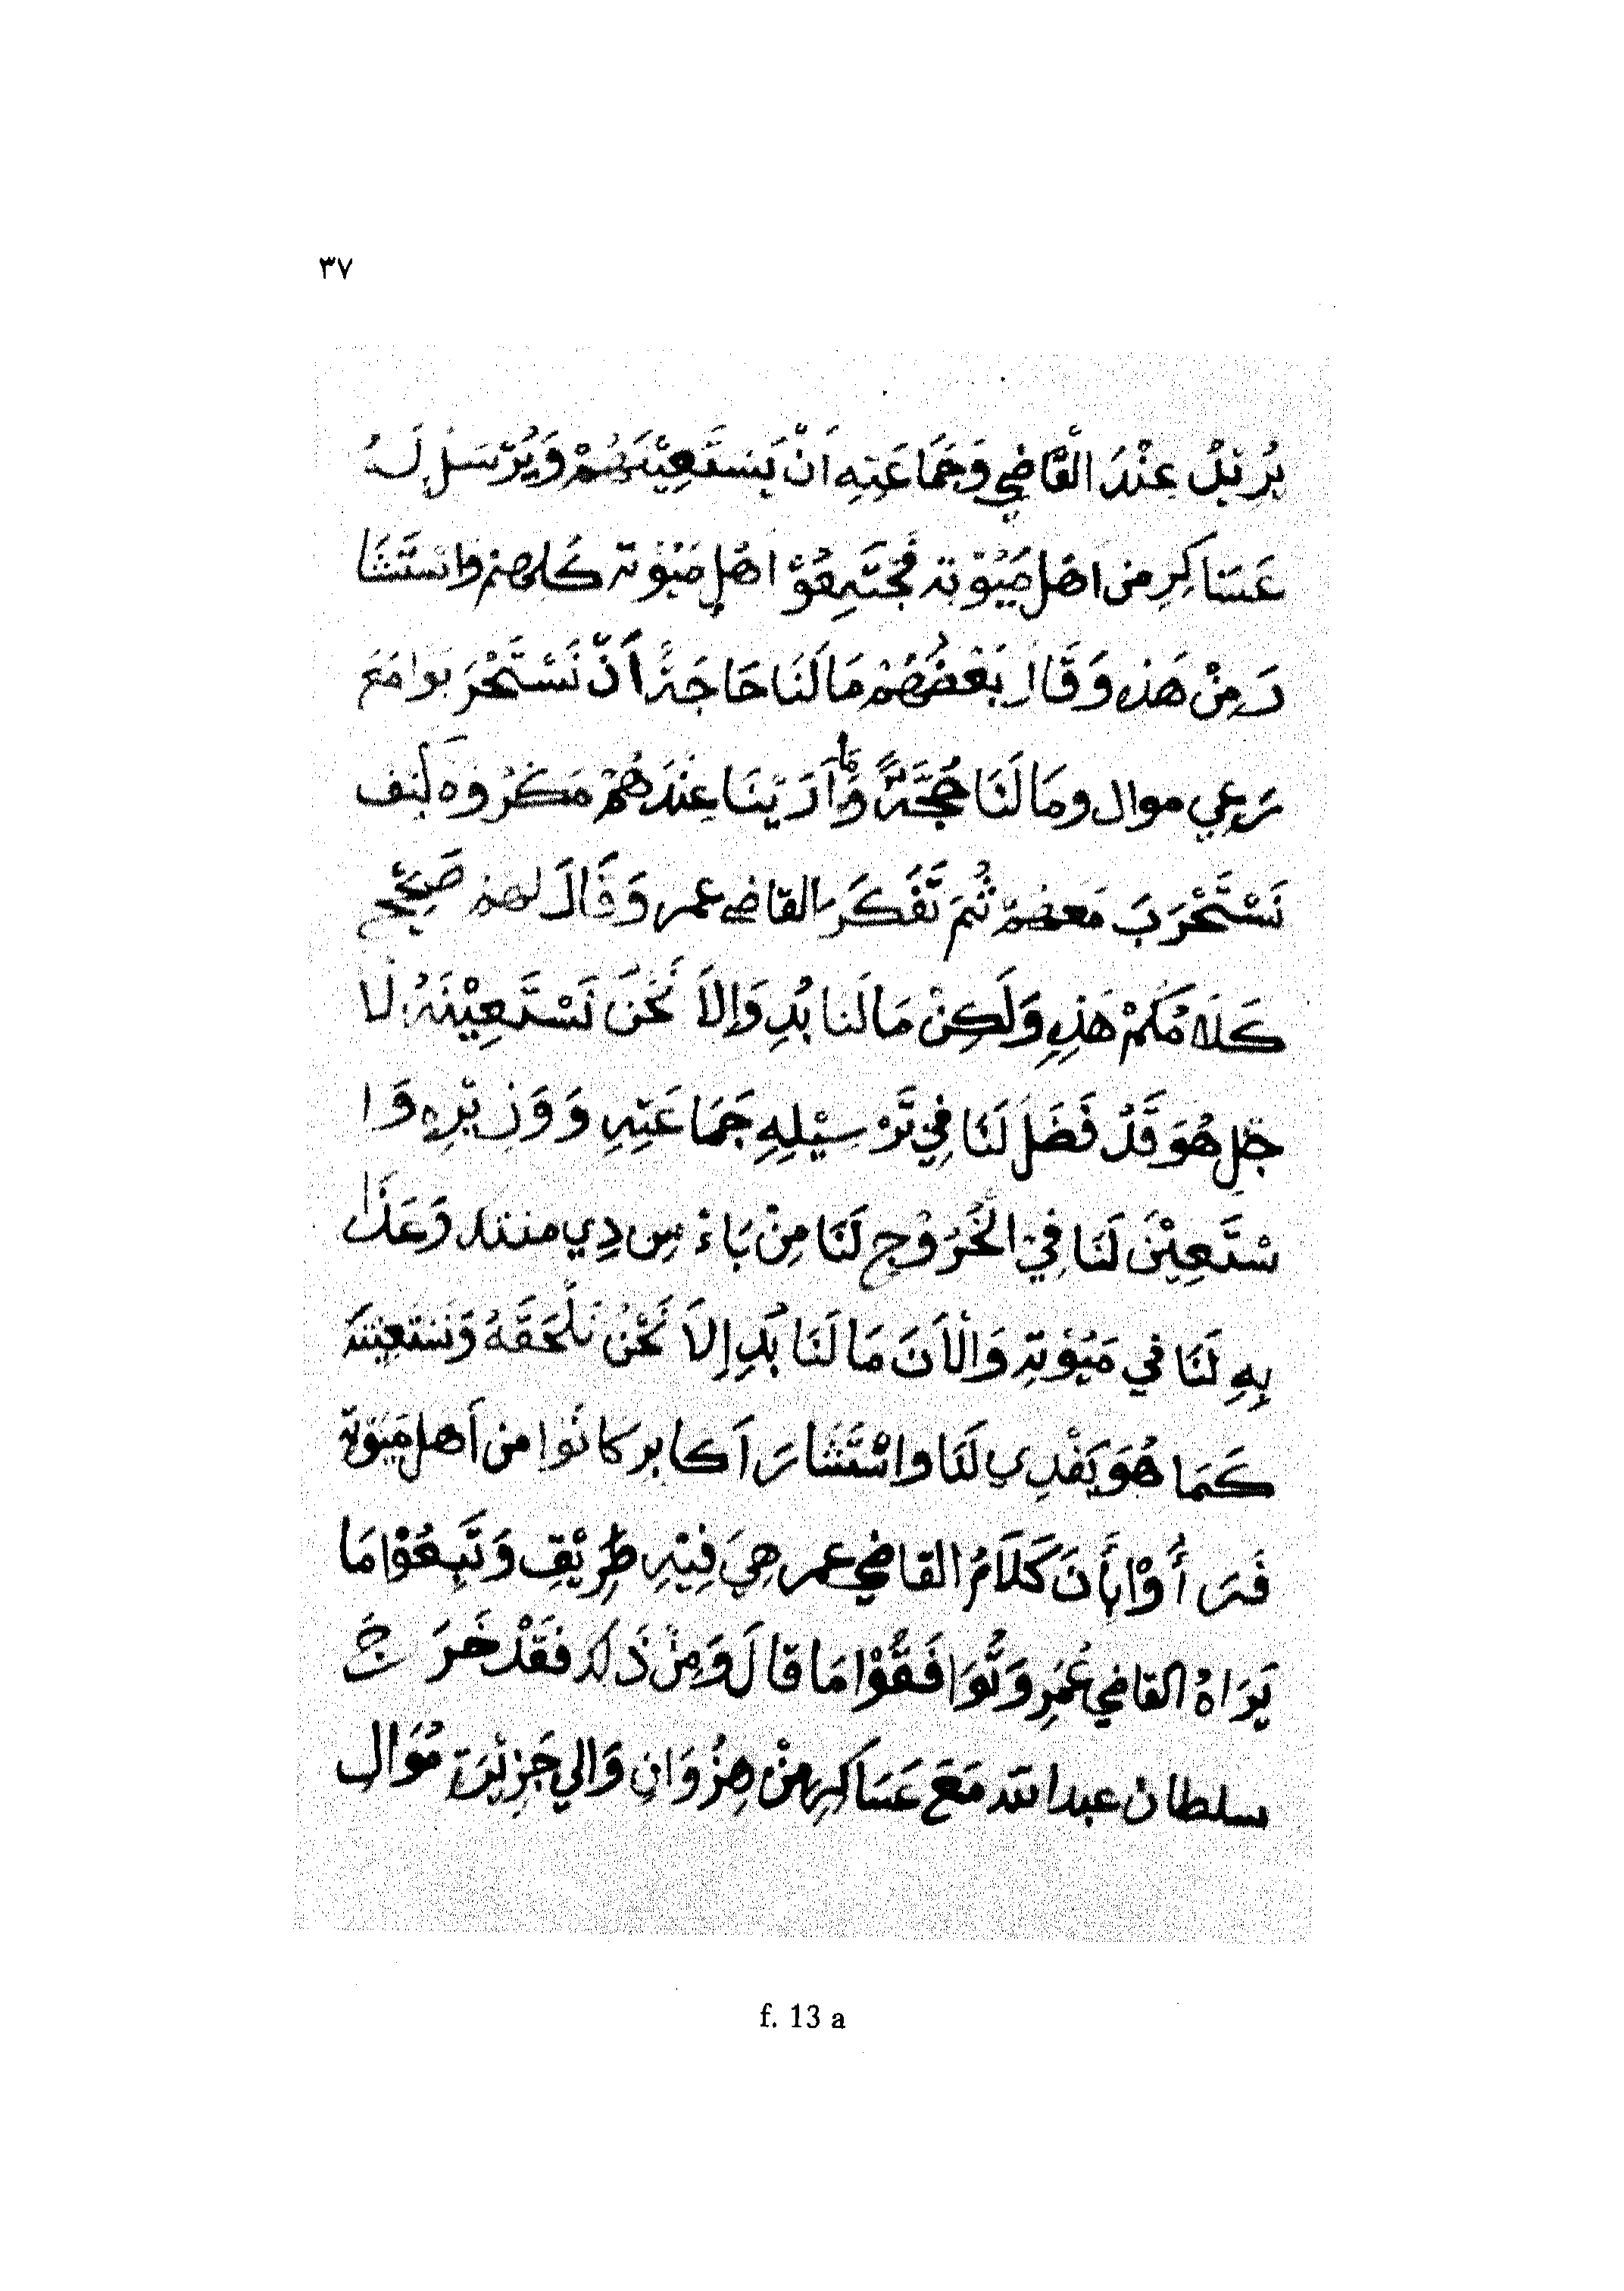 ٣٧
يُرِيْدُ عِنْدَ الْقَاضِي وَجَمَاعَتِهِ اَنْ يَسْتَعِيْنَهُمْ وَيُرْسَلْ لَهُ
عَسَاكِرِ من اهْل مَيُوْتَة فَجْتَمِعُوْا اهْلِ مَيُوْتَة كَلهمْ وَاسْتَشَا
رَ مِنْ هَذِه وَقَالَ بَعْضُهُمْ مَا لَنَا حَاجَةً اَنْ نَسْتَحْرَبوا مَعَ
رَعِي موال ومَا لَنَا حُجَّةً وَمَا اَرَيْنَا عِنْدَهُمْ مَكْرُوه لنف
نَسْتَحْرَبَ مَعهُمْ ثُمَ تَفَكَّرَ القاضي عمر وَقَالَ لهمْ صَحِيْح
كَلَامُكمْ هَذِهِ وَلَكِنْ مَا لَنا بُدِ وَإِلاَ نَحْنَ نَسْتَعِيْنَهُ لَا
جْلِ هُوَ قَدْ فَضَلَ لَنَا فِي تَرْسِيْلِهِ جَمَاعَتِهِ وَوَزِيْرِهِ وَا
سْتَعِيْنَ لَنَا فِيْ الْخَرُوْجِ لَنَا مِنْ بَاءْ سِ دِي منتد وَعَذَا
بِهِ لَنَا في مَيُوْتَةِ وَالْاَنَ مَا لَنَا بُدِ إِلاَ نَحْنُ نَلْحَقَهُ وَنَسْتَعِيْنَهُ
كَمَا هُوَ يَفْدِي لَنَا وَاسْتَشَارَ اَكَابر كانُوا من أَهل مَيُوْتة
فَرَأُوْا بِأَنَ كَلاَمُ القاضي عمر هِيَ فِيْهِ طَرِيْقِ وَتَّبِعُوْا مَا
يَرَاهُ القاضي عُمَرِ وَتَّوَافَقُوْا مَا قالَ وَمِنْ ذَلك فَقَدْ خَرَجَ
سلطان عبد الله مَعَ عَسَاكِرِ مِنْ هِزُوَانِ وَالي جَزِيْرَة مُوَالِ
f. 13 a